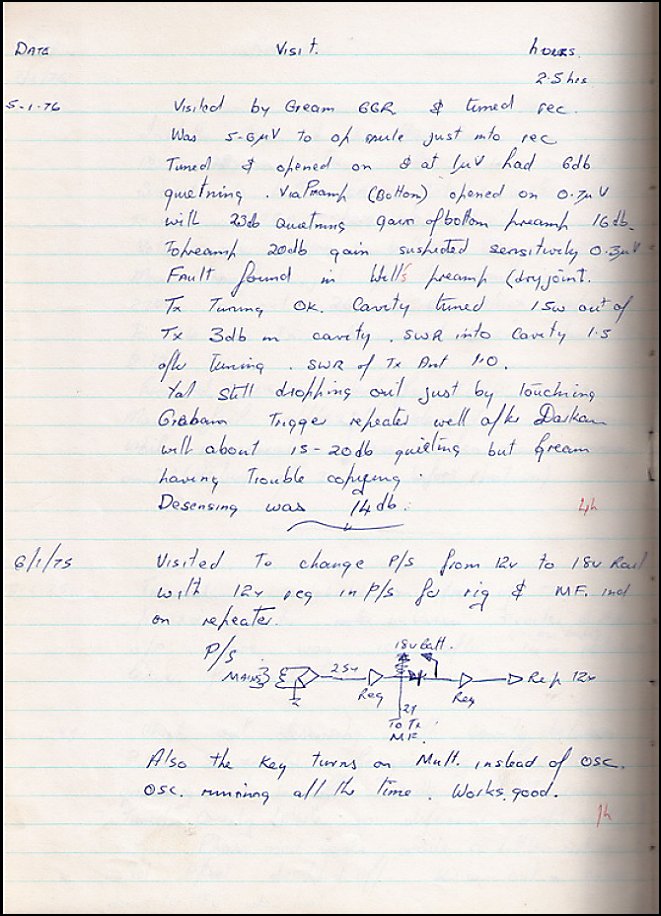 DATE Visit. hours.
2.5hrs
5-1-76 Visited by Gream GGR & tuned rec.
Was 5-6µV to op mute just into rec
Tuned & opened on & at 1µV had 6db
quietning. Via Pramp (Bottom) opened on 0.7µV
with 23db Quietning gain of bottom preamp 16db.
Top preamp 20db gain suspected sensitivity 0.3µV
Fault found in Well's preamp (dry joint.
Tx Tuning OK. Cavity tuned 15w out of
Tx 3db in cavity. SWR into Cavity 1.5
after tuning. SWR of Tx Ant 1.0.
Yal still dropping out just by touching
Graham Trigger repeater well after Darkan
with about 15-20db quieting but Gream
having Trouble copying.
Desensing was 14db. 4h
6/1/75 Visited To change P/S from 12v to 18v Rail
with 12v reg in P/S for rig & MF. ind
on repeater.
P/S 18v Batt.
MAINS 25v Reg Reg Rep 12v
21
To Tx
MF.
Also the Key turns on Mult. instead of osc.
Osc. running all the time. Works good.
1h